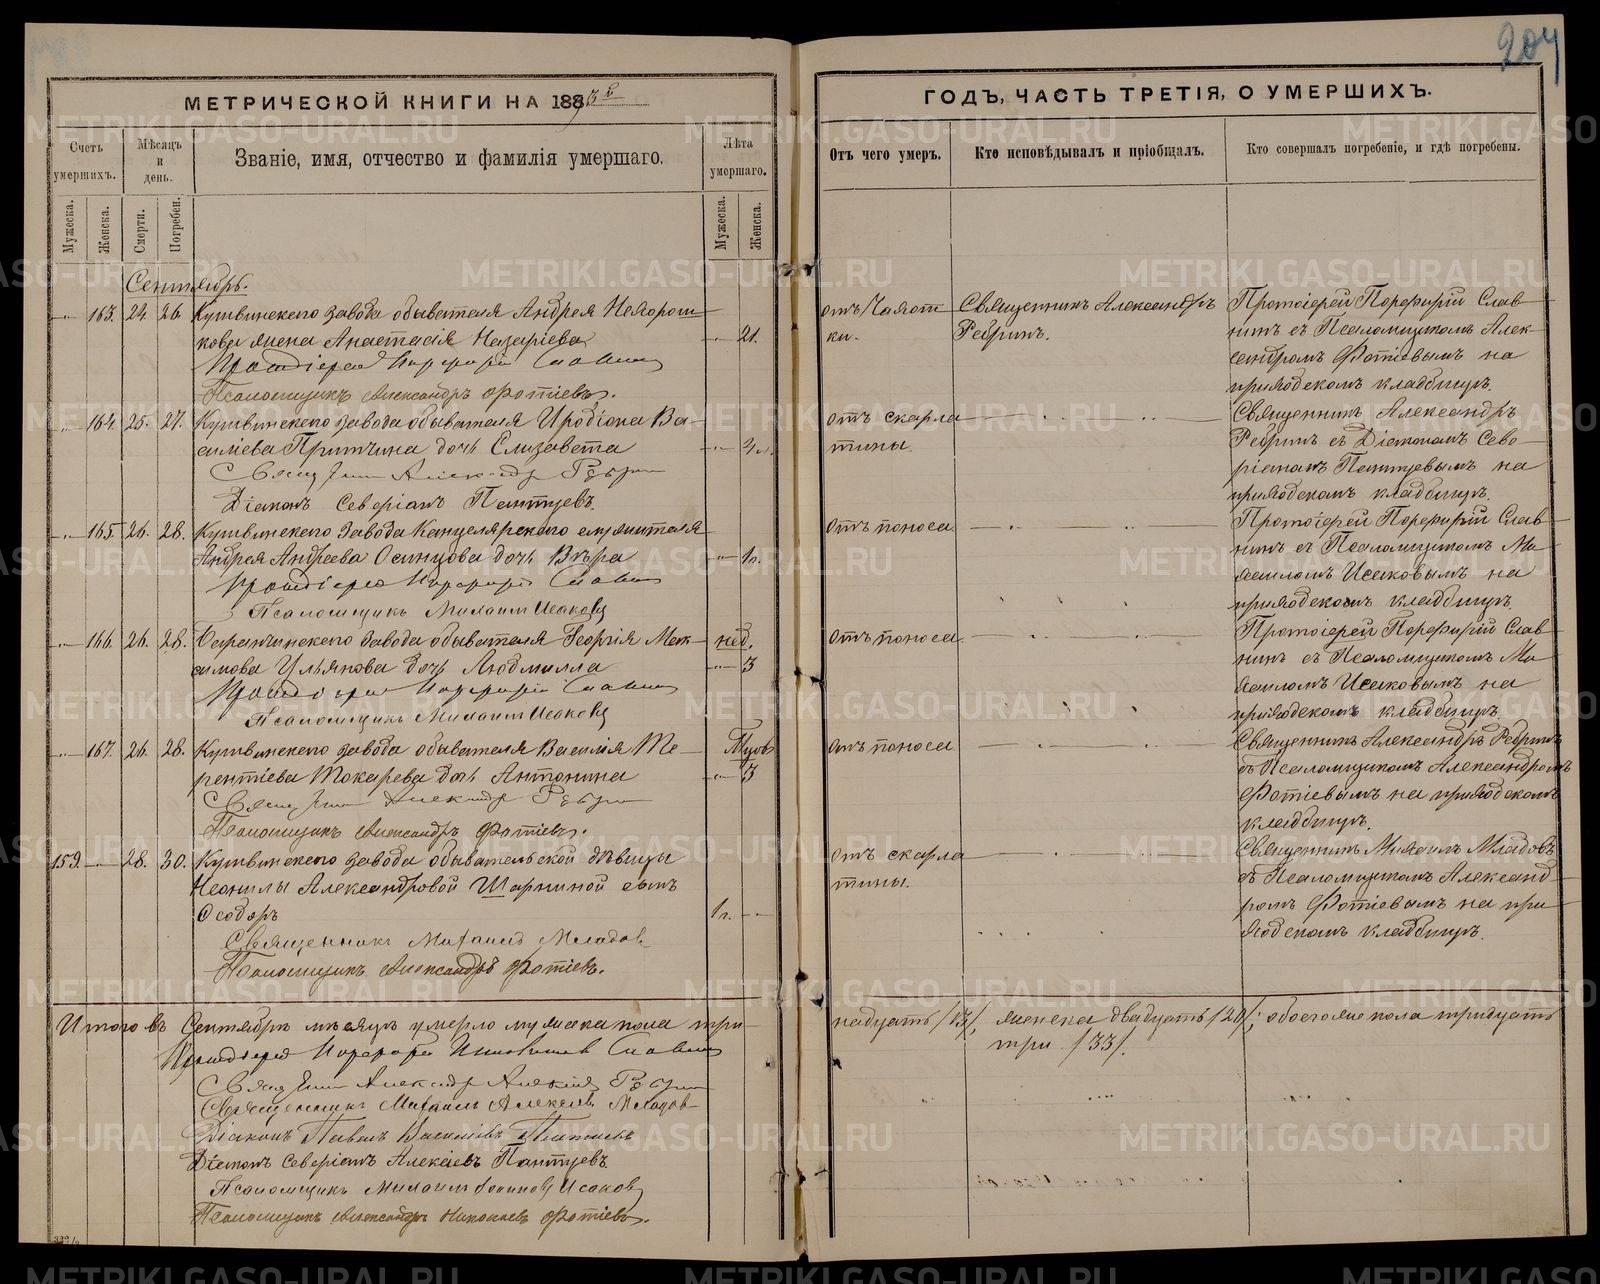 204
МЕТРИЧЕСКОЙ КНИГИ НА 1893й
ГОДЪ, ЧАСТЬ ТРЕТІЯ, О УМЕРШИХЪ.
Счетъ умершихъ.
Мѣсяцъ и день.
Званіе, имя, отчество и фамилія умершаго.
Лѣта умершаго.
Отъ чего умеръ.
Кто исповѣдывалъ и пріобщалъ.
Кто совершалъ погребеніе, и гдѣ погребены.
Мужеска.
Женска.
Смерти.
Погребен.
Мужеска.
Женска.
Сентябрь.
163. 24 26 Кушвинскаго завода обывателя Андрея
кова жена Анастасія Назаріева 21.
Протоіерей Порфирій Славнинъ
Псаломщикъ Александръ Фотіевъ.
отъ чахот
ки.
Священникъ Александръ
Ребринъ.
Протоіерей Порфирій Слав
нинъ съ Псаломщикомъ Алек
сандромъ Фотіевымъ на
приходскомъ кладбищѣ.
164 25. 27. Кушвинскаго завода обывателя Иродіона Ва-
сильева Притчина дочь Елизавета
Священникъ Александръ Ребринъ
Діаконъ Северіанъ Пантуевъ.
отъ скарла
тины.
Священникъ Александръ
Ребринъ съ Діакономъ Севе-
ріаномъ Пантуевымъ на
приходскомъ кладбищѣ.
165. 26. 28. Кушвинскаго завода Канцелярскаго служителя
Андрея Андреева Осинцова дочь Вѣра 1г.
Протоіерей Порфирій Славнинъ
Псаломщикъ Михаилъ Исаковъ
отъ поноса
Протоіерей Порфирій Слав
нинъ съ Псаломщикомъ Ми
хаиломъ Исаковымъ на
приходскомъ кладбищѣ.
166. 26. 28. завода обывателя Георгія Мак- нед.
симова Ульянова дочь Людмилла 3
Протоіерей Порфирій Славнинъ
Псаломщикъ Михаилъ Исаковъ
отъ поноса
Протоіерей Порфирій Слав
нинъ съ Псаломщикомъ Ми
хаиломъ Исаковымъ на
приходскомъ кладбищѣ.
167. 26. 28. Кушвинскаго завода обывателя Василія Те-
рентіева Токарева дочь Антонина 3
Священникъ Александръ Ребринъ
Псаломщикъ Александръ Фотіевъ.
отъ поноса
Священникъ Александръ Ребринъ
съ Псаломщикомъ Александромъ
Фотіевымъ на приходскомъ
кладбищѣ.
159. 28. 30. Кушвинскаго завода обывательской дѣвицы
Неонилы Александровой сынъ
Ѳеодоръ 1г.
Священникъ Михаилъ Младовъ
Псаломщикъ Александръ Фотіевъ.
отъ скарла
тины.
Священникъ Михаилъ Младовъ
съ Псаломщикомъ Александ
ромъ Фотіевымъ на при-
ходскомъ кладбищѣ.
Итого въ Сентябрѣ мѣсяцѣ умерло мужеска пола три-
надцать /13/, женска двадцать /20/; обоего же пола тридцать
три /33/.
Протоіерей Порфирій Славнинъ
Священникъ Александръ Алексіевъ Ребринъ
Священникъ Михаилъ Алексѣевъ Младовъ
Діаконъ Павелъ Василіевъ
Діаконъ Северіанъ Алексіевъ Пантуевъ.
Псаломщикъ Михаилъ Исаковъ
Псаломщикъ Александръ Николаевъ Фотіевъ.
METRIKI.GASO-URAL.RU